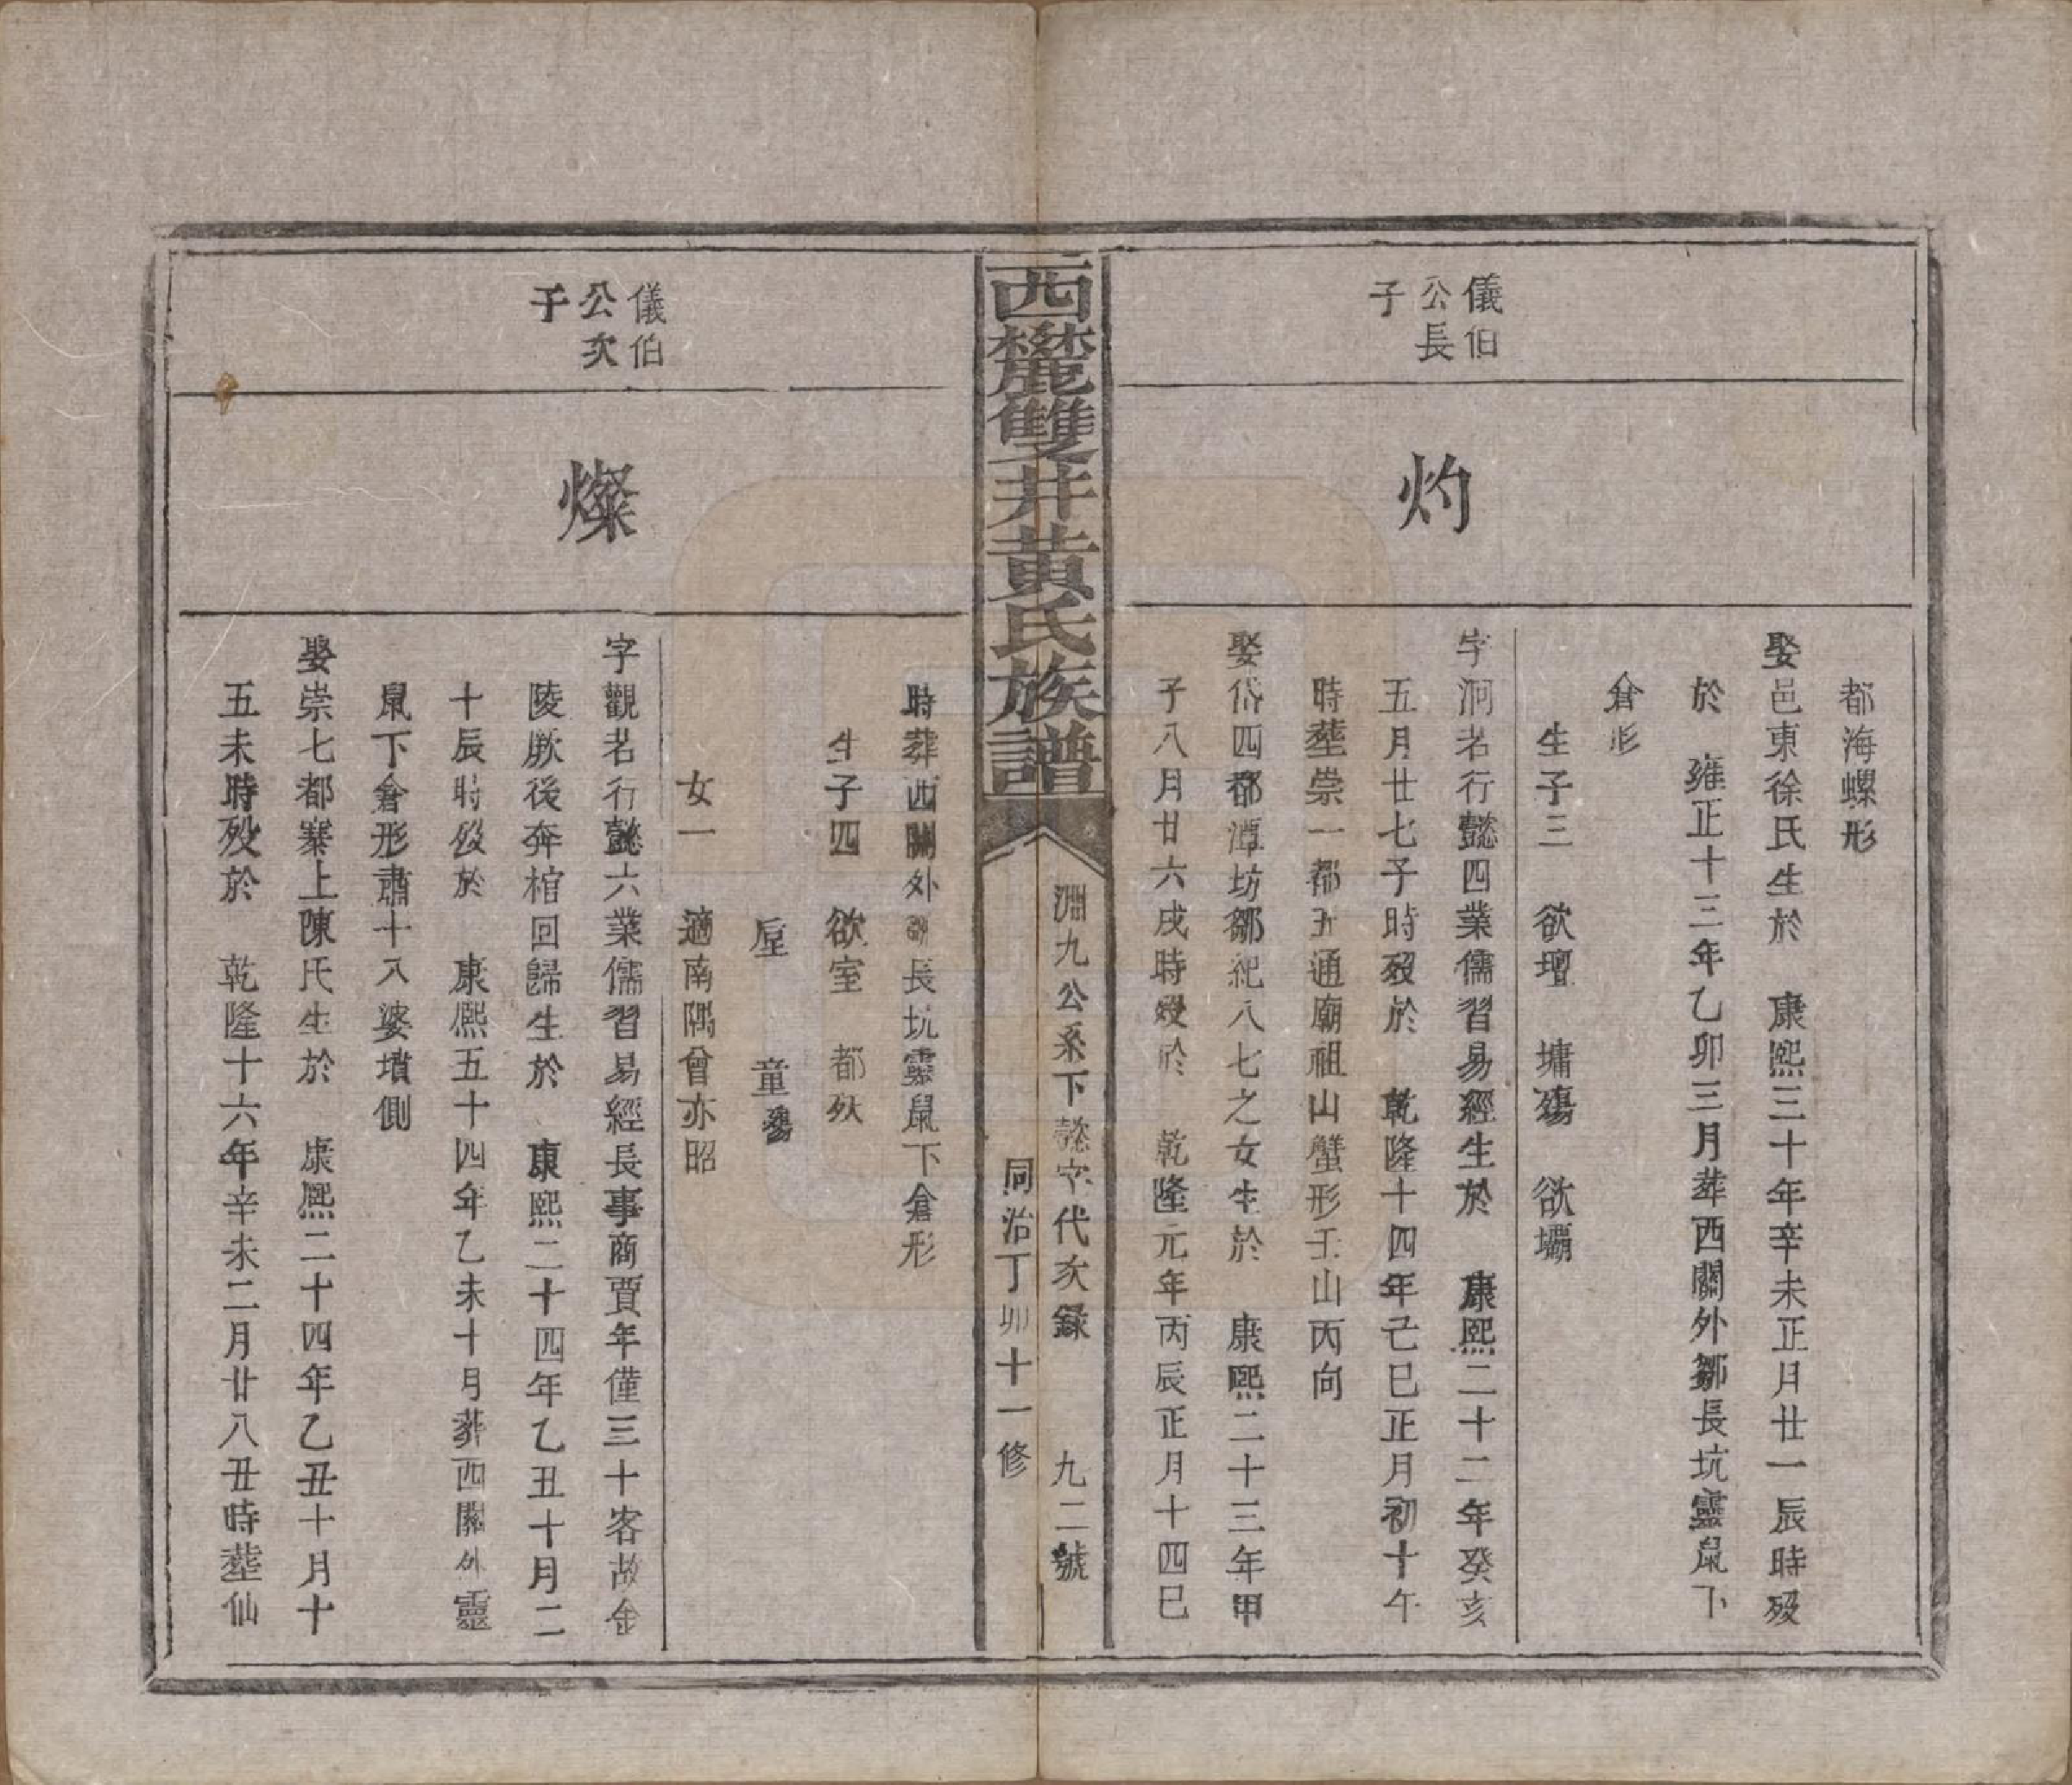 都海螺形
娶邑東徐氏生於　康熙三十年辛未正月廿一辰時歿
於　雍正十三年乙卯三月葬西關外鄒長坑靈鼠下
倉形
生子三　欲壇　墉殤　欲壩
儀伯
公長
子
灼
字泂名行懿四業儒習易經生於　康熙二十二年癸亥
五月廿七子時歿於　乾隆十四年己巳正月初十午
時塟崇一都五通廟祖山蟹形壬山丙向
娶岱四都潭坊鄒紀八七之女生於　康熙二十三年甲
子八月廿六戌時歿於　乾隆元年丙辰正月十四巳
西麓雙井黃氏族譜
淵九公系下懿字代次錄　九二號
同治丁卯十一修
時葬西關外鄒長坑靈鼠下倉形
生子四　欲室　都夭
垕　童殤
女一　適南隅曾亦昭
儀伯
公次
子
燦
字觀名行懿六業儒習易經長事商賈年僅三十客故金
陵厥後奔棺回歸生於　康熙二十四年乙丑十月二
十辰時歿於　康熙五十四年乙未十月葬西關外靈
鼠下倉形肅十八婆墳側
娶崇七都寨上陳氏生於　康熙二十四年乙丑十月十
五未時歿於　乾隆十六年辛未二月廿八丑時塟仙